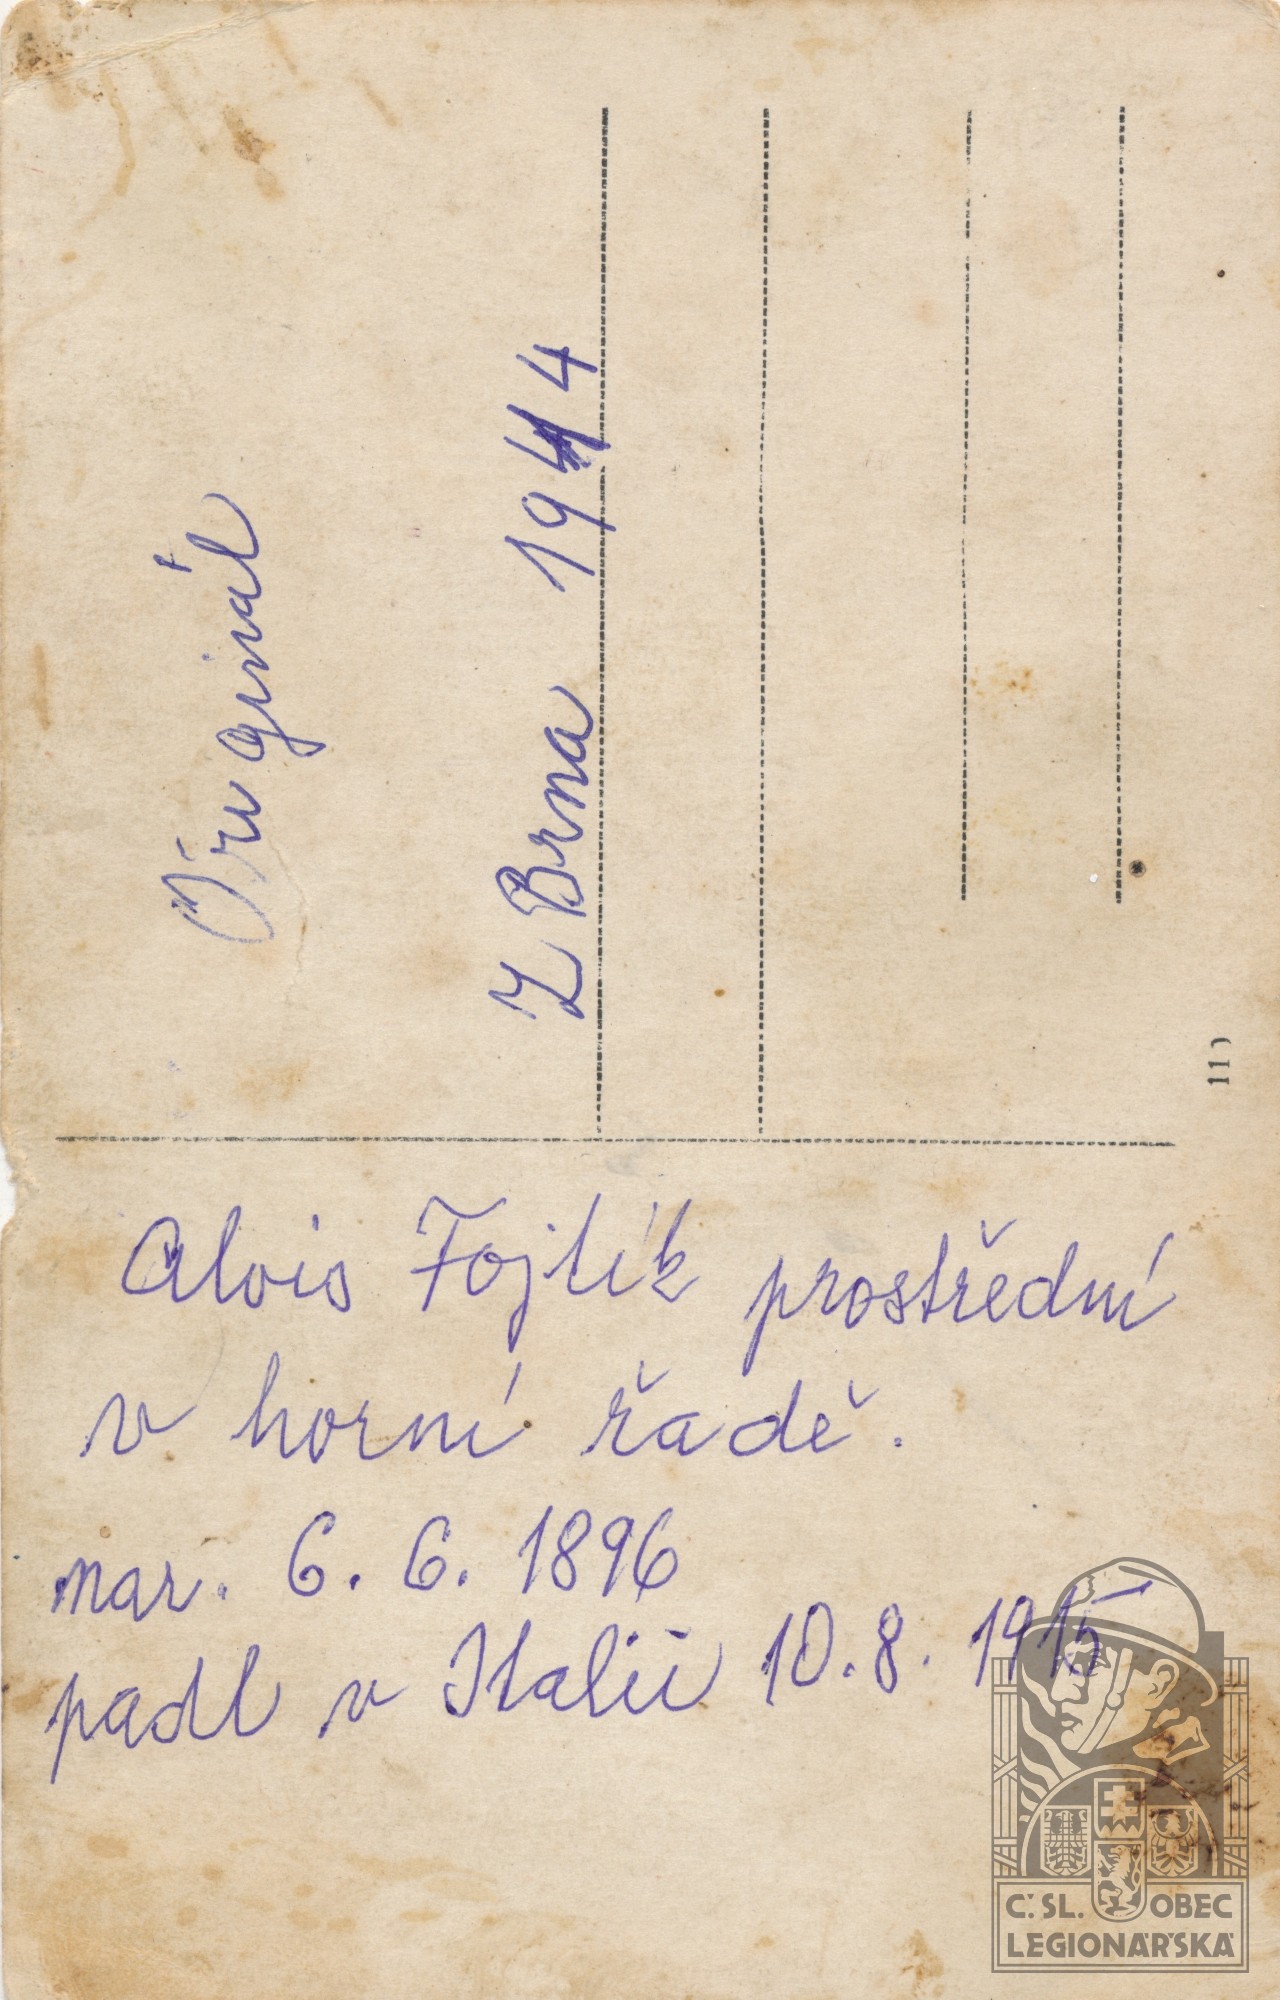 Originál
Z Brna 1914
Alois Fojtík prostřední
v horní řadě.
nar. 6. 6. 1896
padl v Italii 10. 8. 1915
11)
Č. SL. OBEC
LEGIONÁŘSKÁ